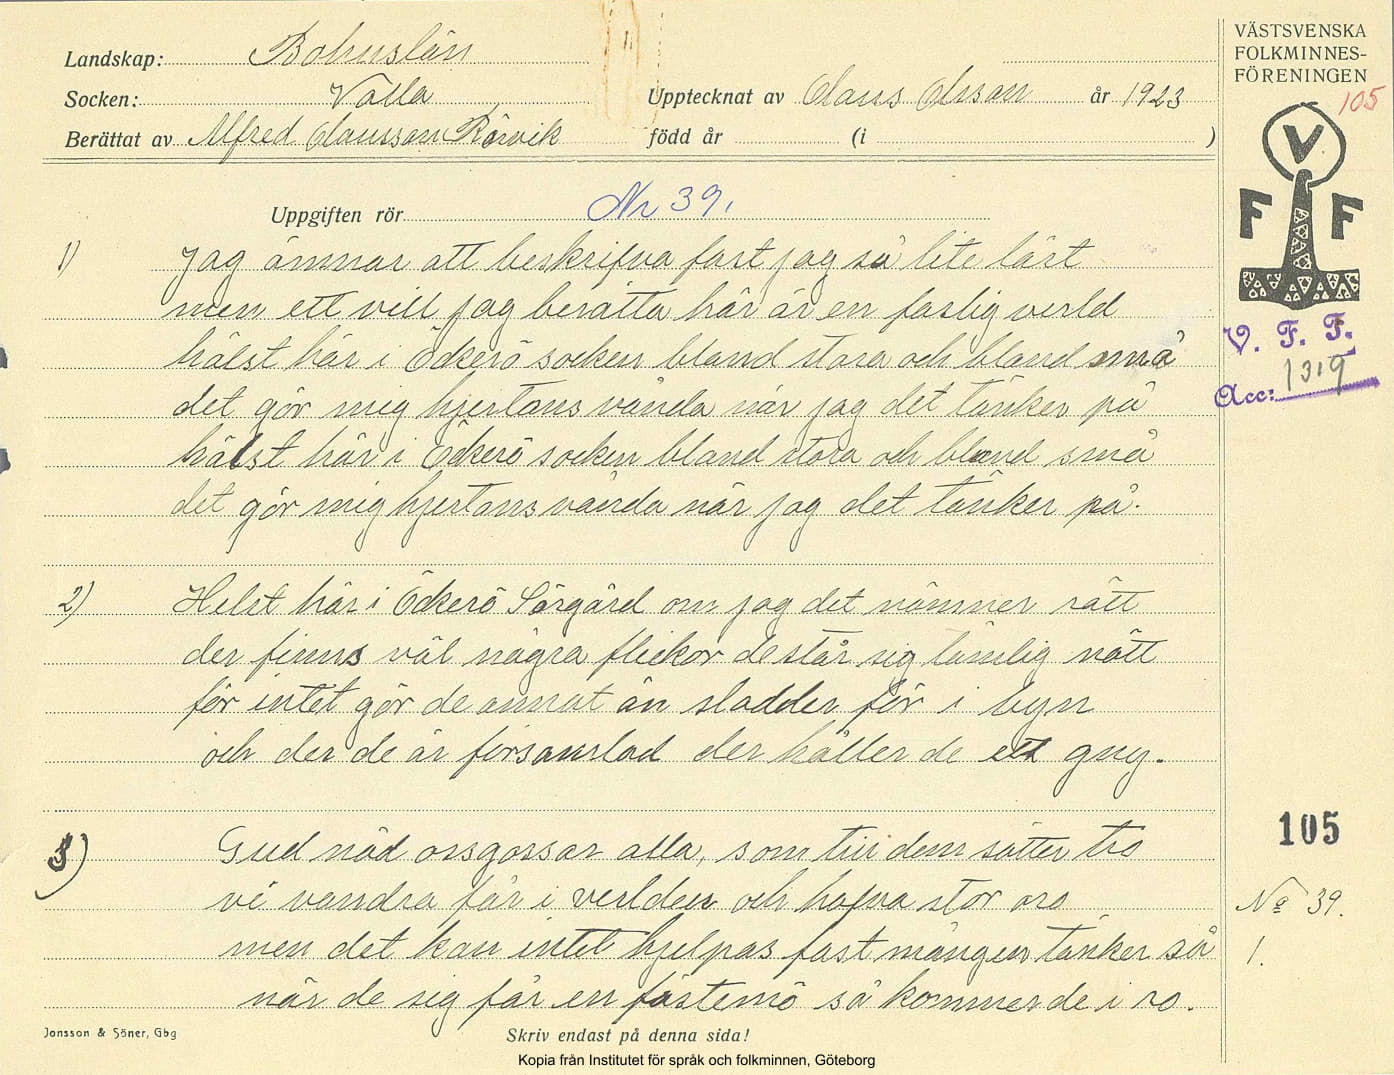 Landskap: Bohuslän
Socken: Valla
Upptecknat av Claus Olsson år 1923
Berättat av Alfred Claussson Rörvik född år (i )
VÄSTSVENSKA
FOLKMINNES-
FÖRENINGEN
105
V
F F
V. F. F.
Acc: 1319
Uppgiften rör Nr 39.
1) Jag ämnar att beskrifva fast jag så lite lärt
men ett vill jag berätta här är en faslig verld
hälst här i Öckerö socken bland stora och bland små
det gör mig hjertans vånda när jag det tänker på
hälst här i Öckerö socken bland stora och bland små
det gör mig hjertans vånda när jag det tänker på.
2) Helst här i Öckerö Sörgård om jag det nämner rätt
der finns väl några flickor de står sig tämlig nätt
för intet gör de annat än sladder för i byn
och der de är församlad der håller de ett gny.
3) Gud nåd oss gossar alla, som till dem sätter tro
vi vandra får i verlden och hafva stor oro
men det kan intet hjelpas fast mången tänker så
när de sig får en fästemö så kommer de i ro.
105
No 39.
1.
Jonsson & Söner, Gbg
Skriv endast på denna sida!
Kopia från Institutet för språk och folkminnen, Göteborg